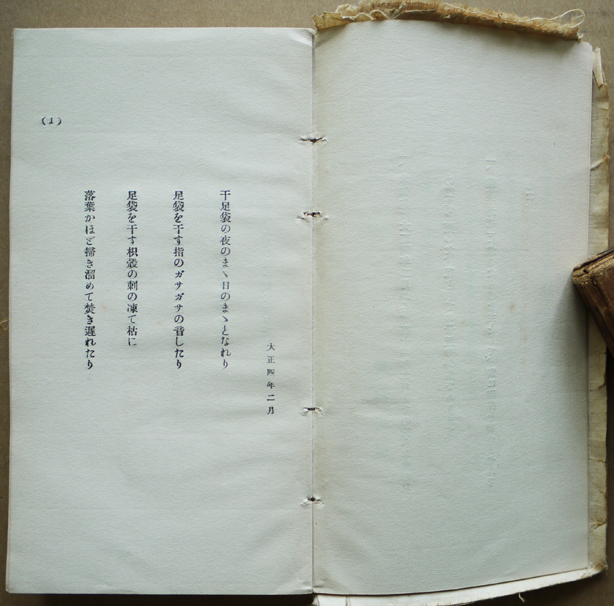 大正四年二月
干足袋の夜のまゝ日のまゝとなれり
足袋を干す指のガサガサの音したり
足袋を干す枳殼の刺の凍て枯に
落葉かほど掃き溜めて焚き遅れたり
(1)